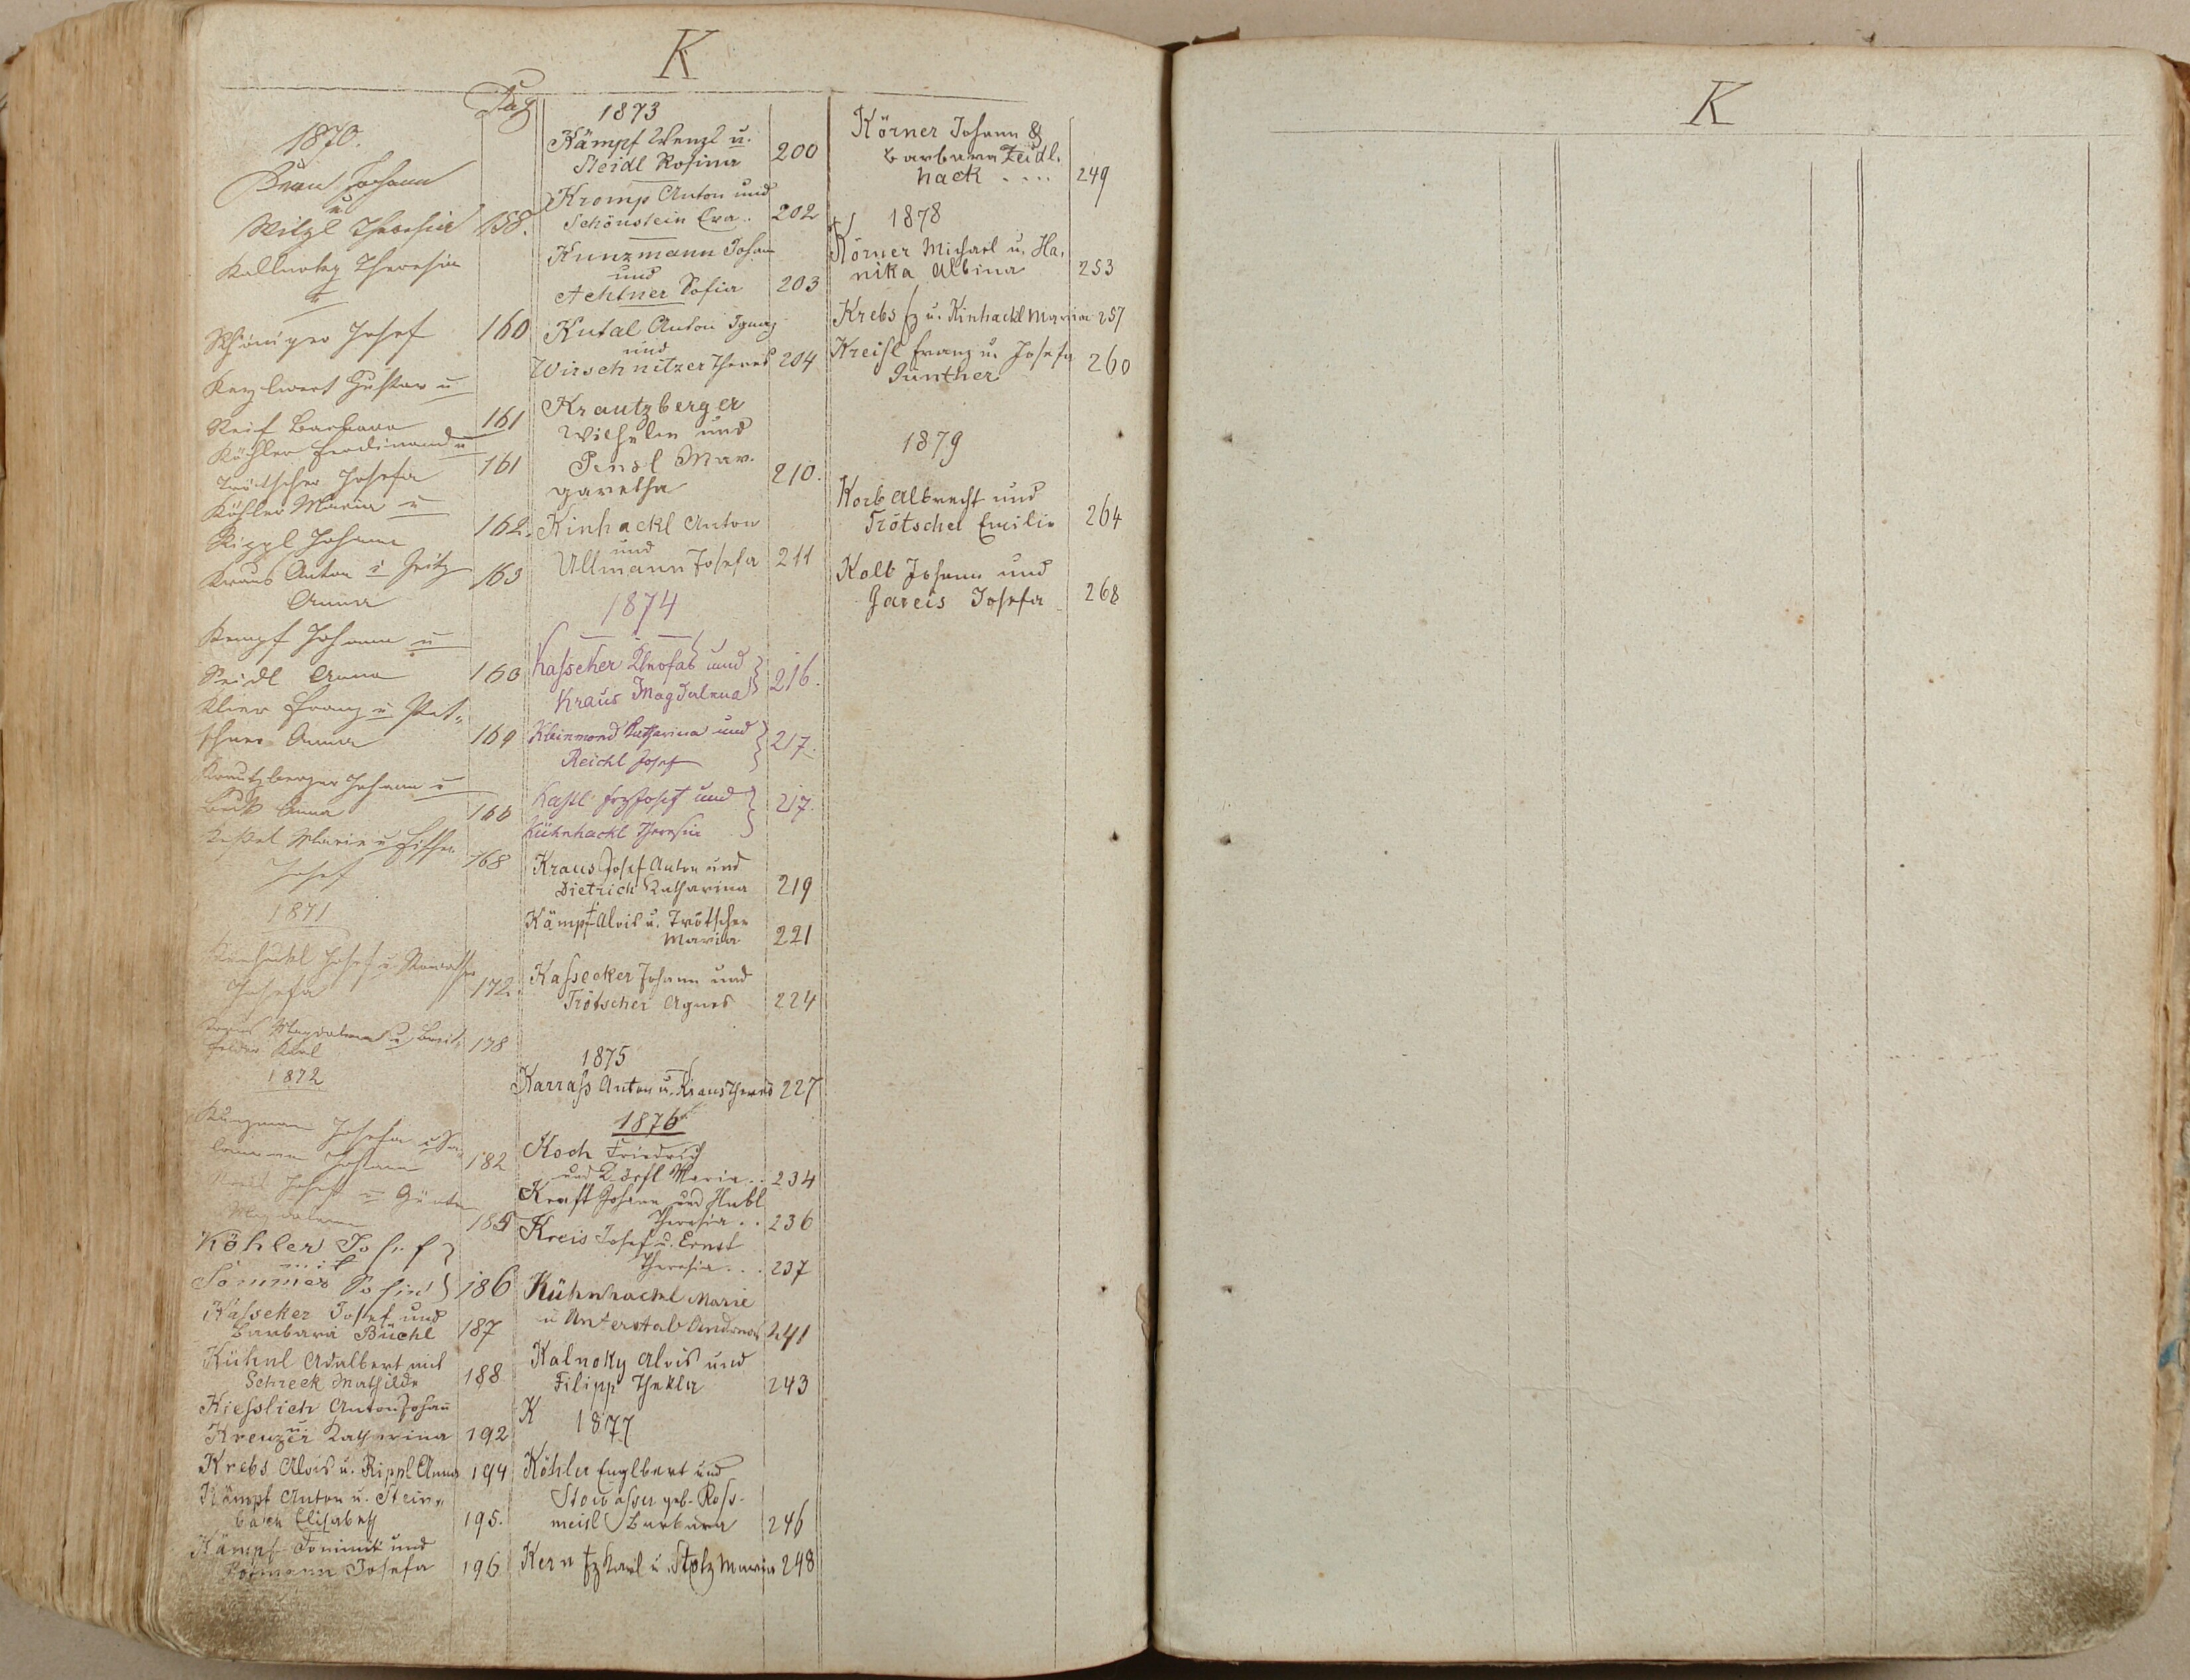 K
Pag
1870.
Johann
u
Witzl Theresia 158.
Theresia
u
Josef 160
Gustav u
Reif Barbara 161
Köhler Ferdinand u
Trötscher Josefa 161
Köhler Maria u
Rippl Johann 162.
Kraus Anton u
Anna 163
Kempf Johann u
Seidl Anna 163
Klier Franz u Pet-
schner Anna 164
Krautzberger Johann u
Anna 166
Marie u Fischer
Josef 168
1871
Josef u
Josefa 172.
Kraus Magdalena u Breit-
felder Karl 178
1872
Kunzmann Josefa u
Johann 182
Josef u Günter
Magdalena 185
Köhler Josef
mit
Sommer Sofia 186
Kaßeker Josef und
Barbara Büchl 187
Kühnl Adalbert mit
Schreck Mathilde 188
Kießlich Anton Johann
u.
Kreuzer Katharina 192
Krebs Alois u. Rippl Anna 194
Kämpf Anton u. Stein-
bach Elisabeth 195.
Kämpf Dominik und
Josefa 196
1873
Kämpf Wenzl u.
Steidl Rosina 200
Kromp Anton und
Schönstein Eva.. 202
Kunzmann Johann
und
Achtner Sofia 203
Kutal Anton Ignaz
und
Wirschnitzer Theres 204
Krautzberger
Wilhelm und
Pensl Mar-
garetha 210.
Kinhackl Anton
und
Ullmann Josefa 211
1874
Kaßeker und
Kraus Magdalena 216.
Kleinmond Katharina und
Reichl Josef 217.
Kastl Frz Josef und
Kühnhackl Theresia 217.
Kraus Josef Anton und
Dietrich Katharina 219
Kämpf Alois u. Trötscher
Maria 221
Kaßecker Johann und
Trötscher Agnes 224
1875
Karraß Anton u. Kraus Theres 227
1876
Koch Friedrich
und Dörfl Maria.. 234
Kraft Johann und Habl
Theresia.. 236
Kreis Josef u. Ernst
Theresia... 237
Kühnhackl Marie
u Unterstab Andreas 241
Kalnoky Alois und
Filipp Thekla 243
K 1877
Köhler Englbert und
Stowasser geb. Roß-
meisl Barbara 246
Kern Fz Karl u. Stolz Maria 248
Körner Johann &
Barbara Zeidl.
hack .... 249
1878
Körner Michael u. Ha-
nika Albina 253
Krebs Fz u. Kinhackl Maria 257
Kreißl Franz u. Josefa
Günther 260
1879
Korb Albrecht und
Trötscher Emilie 264
Kolb Johann und
Gareis Josefa 268
K